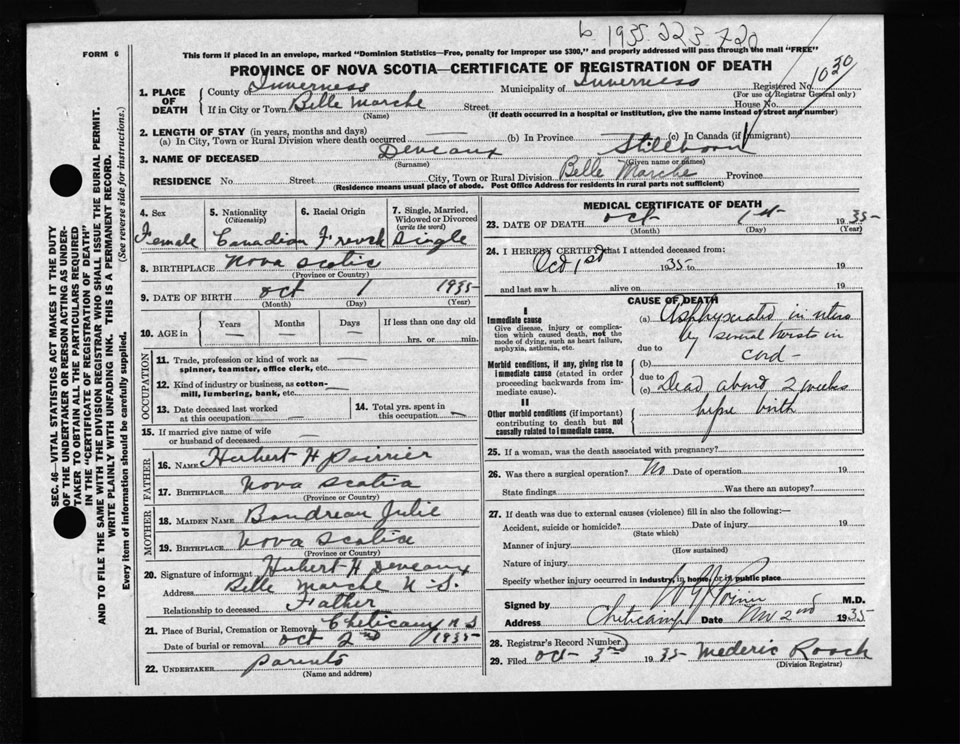 b. 1935. 223 720
FORM 6
This form if placed in an envelope, marked "Dominion Statistics—Free, penalty for improper use $300," and properly addressed will pass through the mail "FREE"
PROVINCE OF NOVA SCOTIA—CERTIFICATE OF REGISTRATION OF DEATH
1. PLACE OF DEATH County of Inverness Municipality of Inverness Registered No. 1030
(For use of Registrar General only)
If in City or Town Belle Marche Street House No.
(Name) (If death occurred in a hospital or institution, give the name instead of street and number)
2. LENGTH OF STAY (in years, months and days)
(a) In City, Town or Rural Division where death occurred — (b) In Province (c) In Canada (if immigrant)
3. NAME OF DECEASED Deveaux Stillborn
(Surname) (Given name or names)
RESIDENCE No. Street City, Town or Rural Division Belle Marche Province
(Residence means usual place of abode. Post Office Address for residents in rural parts not sufficient)
4. Sex Female
5. Nationality (Citizenship) Canadian
6. Racial Origin French
7. Single, Married, Widowed or Divorced (write the word) Single
8. BIRTHPLACE Nova Scotia
(Province or Country)
9. DATE OF BIRTH Oct 1 1935
(Month) (Day) (Year)
10. AGE in Years — Months — Days — If less than one day old
hrs. or min.
OCCUPATION
11. Trade, profession or kind of work as —
spinner, teamster, office clerk, etc.
12. Kind of industry or business, as cotton- —
mill, lumbering, bank, etc.
13. Date deceased last worked at this occupation —
14. Total yrs. spent in this occupation —
15. If married give name of wife or husband of deceased —
FATHER
16. NAME Hubert H
17. BIRTHPLACE Nova Scotia
(Province or Country)
MOTHER
18. MAIDEN NAME Boudreau Julie
19. BIRTHPLACE Nova Scotia
(Province or Country)
20. Signature of informant Hubert H Deveaux
Address Belle Marche N-S.
Relationship to deceased Father
21. Place of Burial, Cremation or Removal Cheticamp N S
Date of burial or removal Oct 2nd 1935
22. UNDERTAKER parents
(Name and address)
MEDICAL CERTIFICATE OF DEATH
23. DATE OF DEATH Oct 1st 1935
(Month) (Day) (Year)
24. I HEREBY CERTIFY that I attended deceased from:
Oct 1st 1935 to 19
and last saw h alive on 19
CAUSE OF DEATH
I
Immediate cause
Give disease, injury or complication which caused death, not the mode of dying, such as heart failure, asphyxia, asthenia, etc.
(a) Asphyxiated in utero
due to by several twists in
cord -
Morbid conditions, if any, giving rise to immediate cause (stated in order proceeding backwards from immediate cause).
(b)
due to
(c) Dead about 2 weeks
before birth
II
Other morbid conditions (if important) contributing to death but not causally related to immediate cause.
25. If a woman, was the death associated with pregnancy?
26. Was there a surgical operation? No Date of operation 19
State findings Was there an autopsy?
27. If death was due to external causes (violence) fill in also the following:—
Accident, suicide or homicide? Date of injury 19
(State which)
Manner of injury
(How sustained)
Nature of injury
Specify whether injury occurred in industry, in home, or in public place
Signed by M.D.
Address Cheticamp Date Nov 2nd 1935
28. Registrar's Record Number
29. Filed Oct - 3rd 1935 Mederic Roach
(Division Registrar)
SEC. 46—VITAL STATISTICS ACT MAKES IT THE DUTY
OF THE UNDERTAKER OR PERSON ACTING AS UNDER-
TAKER TO OBTAIN ALL THE PARTICULARS REQUIRED
IN THE "CERTIFICATE OF REGISTRATION OF DEATH"
AND TO FILE THE SAME WITH THE DIVISION REGISTRAR WHO SHALL ISSUE THE BURIAL PERMIT.
WRITE PLAINLY WITH UNFADING INK. THIS IS A PERMANENT RECORD.
Every item of information should be carefully supplied. (See reverse side for instructions.)